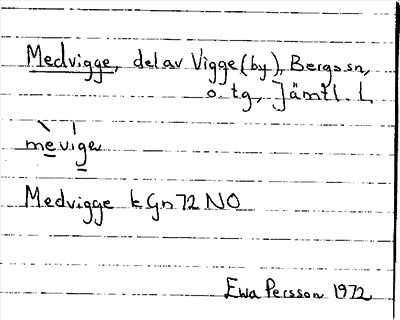 Medvigge, del av Vigge (by), Bergs sn,
o. tg, Jämtl. L
mèviga
Medvigge k Gn 72 NO
Ewa Persson 1972